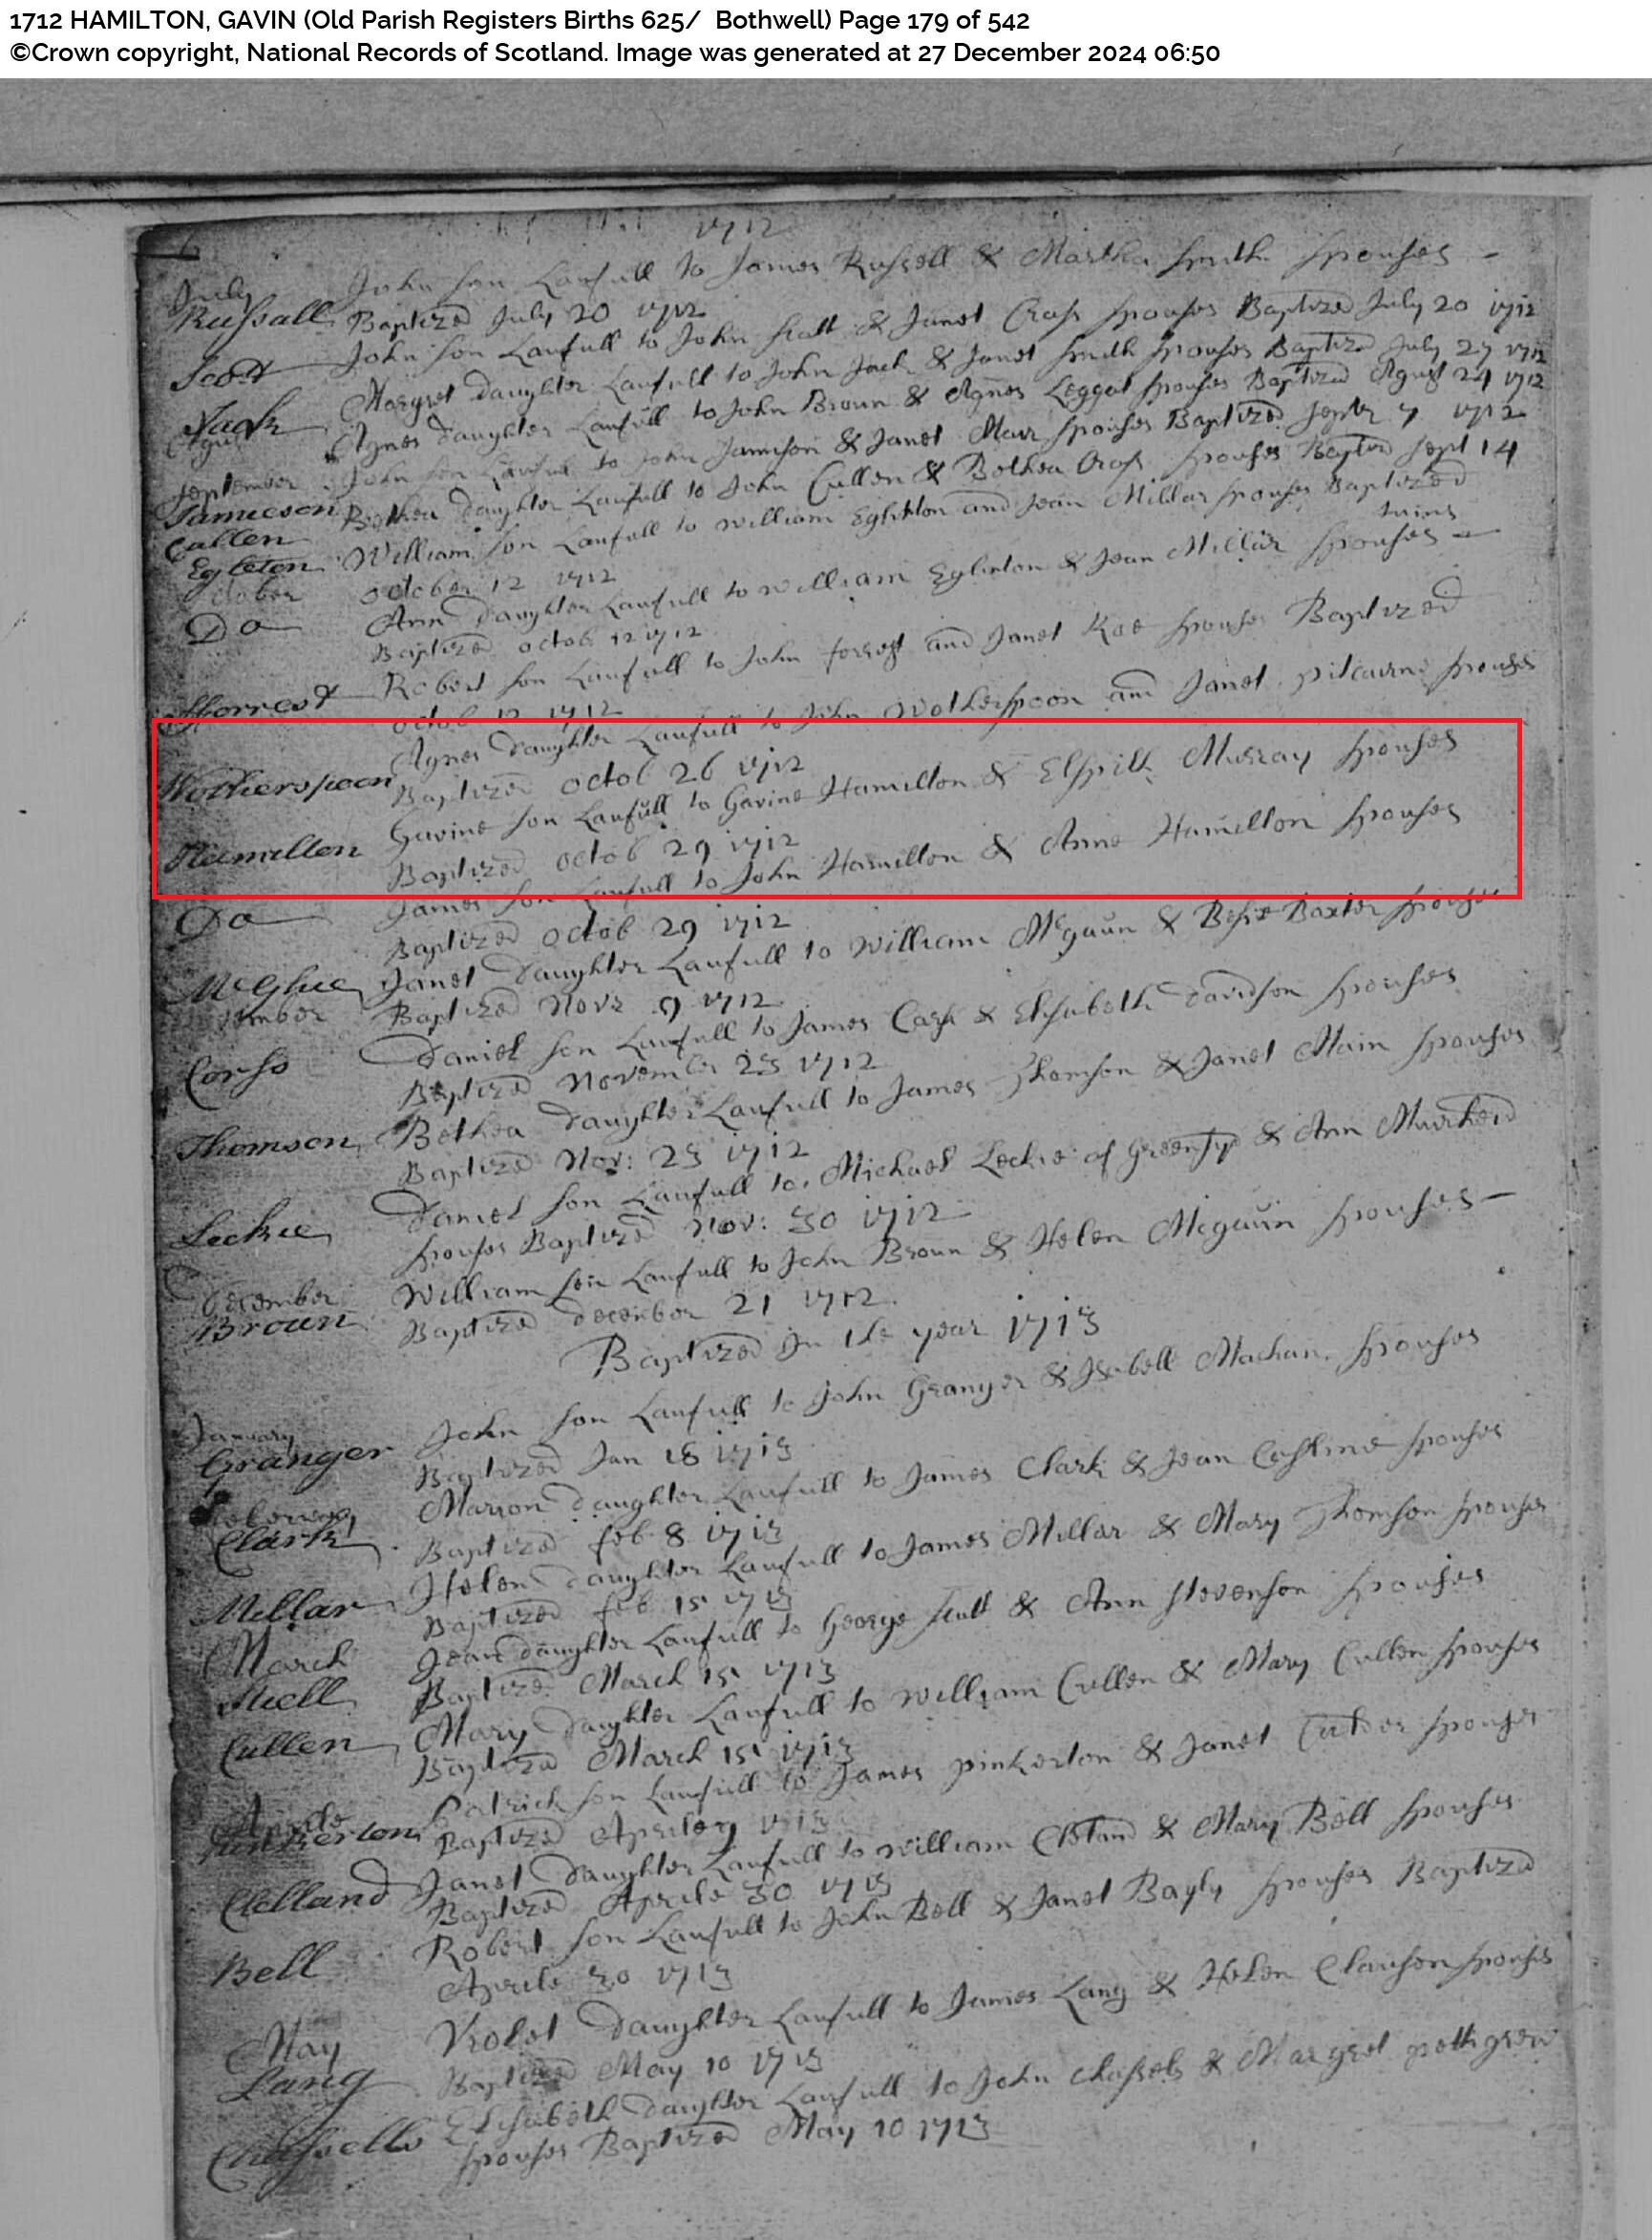 1712 HAMILTON, GAVIN (Old Parish Registers Births 625/ Bothwell) Page 179 of 542
©Crown copyright, National Records of Scotland. Image was generated at 27 December 2024 06:50
1712
July John son Lawfull to James Russell & Martha Smith Spouses -
Russall Baptized July 20 1712
Scott John son Lawfull to John Scott & Janet Cross Spouses Baptized July 20 1712
Jack Margret daughter Lawfull to John Jack & Janet Smith Spouses Baptized July 27 1712
Agnes daughter Lawfull to John Broun & Agnes Leggat Spouses Baptized Agust 24 1712
September John son Lawfull to John Jamison & Janet Marr Spouses Baptized Septr 7 1712
Jamieson
Cullen Bethea daughter Lawfull to John Cullen & Bethea Cross Spouses Baptized Sept 14
Egleton William son Lawfull to William Eglinton and Jean Millar Spouses Baptized
October 12 1712 twins
Do Ann daughter Lawfull to William Eglinton & Jean Millar Spouses -
Baptized octob 12 1712
fforrest Robert son Lawfull to John forrest and Janet Rae Spouses Baptized
octob 12 1712
Wotherspoon Agnes daughter Lawfull to John Wotherspoon and Janet pitcairne Spouses
Baptized octob 26 1712
Hamilton Gavine son Lawfull to Gavine Hamilton & Elspith Murray Spouses
Baptized octob 29 1712
Do James son Lawfull to John Hamilton & Anne Hamilton Spouses
Baptized octob 29 1712
McGhie Janet daughter Lawfull to William Mcgaun & Baxter Spouses
Baptized Novr 9 1712
Corss Daniel son Lawfull to James & Elisabeth davidson Spouses
Baptized November 23 1712
Thomson Bethea daughter Lawfull to James Thomson & Janet Main Spouses
Baptized Nov: 23 1712
Leckie Daniel son Lawfull to Michael Leckie of & Ann Muirhead
Spouses Baptized Nov: 30 1712
December William son Lawfull to John Broun & Helen Mcgaun Spouses -
Broun Baptized december 21 1712
Baptized In the year 1713
January John son Lawfull to John Granger & Isobell Machan Spouses
Granger Baptized Jan 18 1713
Marion daughter Lawfull to James Clark & Jean Spouses
Clark Baptized feb 8 1713
Millar Helen daughter Lawfull to James Millar & Mary Thomson Spouses
Baptized feb 15 1713
March Jean daughter Lawfull to George & Ann Stevenson Spouses
Baptized March 15 1713
Cullen Mary daughter Lawfull to William Cullen & Mary Cullen Spouses
Baptized March 15 1713
Patrick son Lawfull to James pinkerton & Janet Spouses
Pinkerton Baptized Aprile 1713
Clelland Janet daughter Lawfull to William Cleland & Mary Bell Spouses
Baptized Aprile 30 1713
Bell Robert son Lawfull to John Bell & Janet Bayly Spouses Baptized
Aprile 30 1713
May Violet daughter Lawfull to James Lang & Helen Clauson Spouses
Lang Baptized May 10 1713
Elisabeth daughter Lawfull to John Chassels & Margret pettigrew
Spouses Baptized May 10 1713